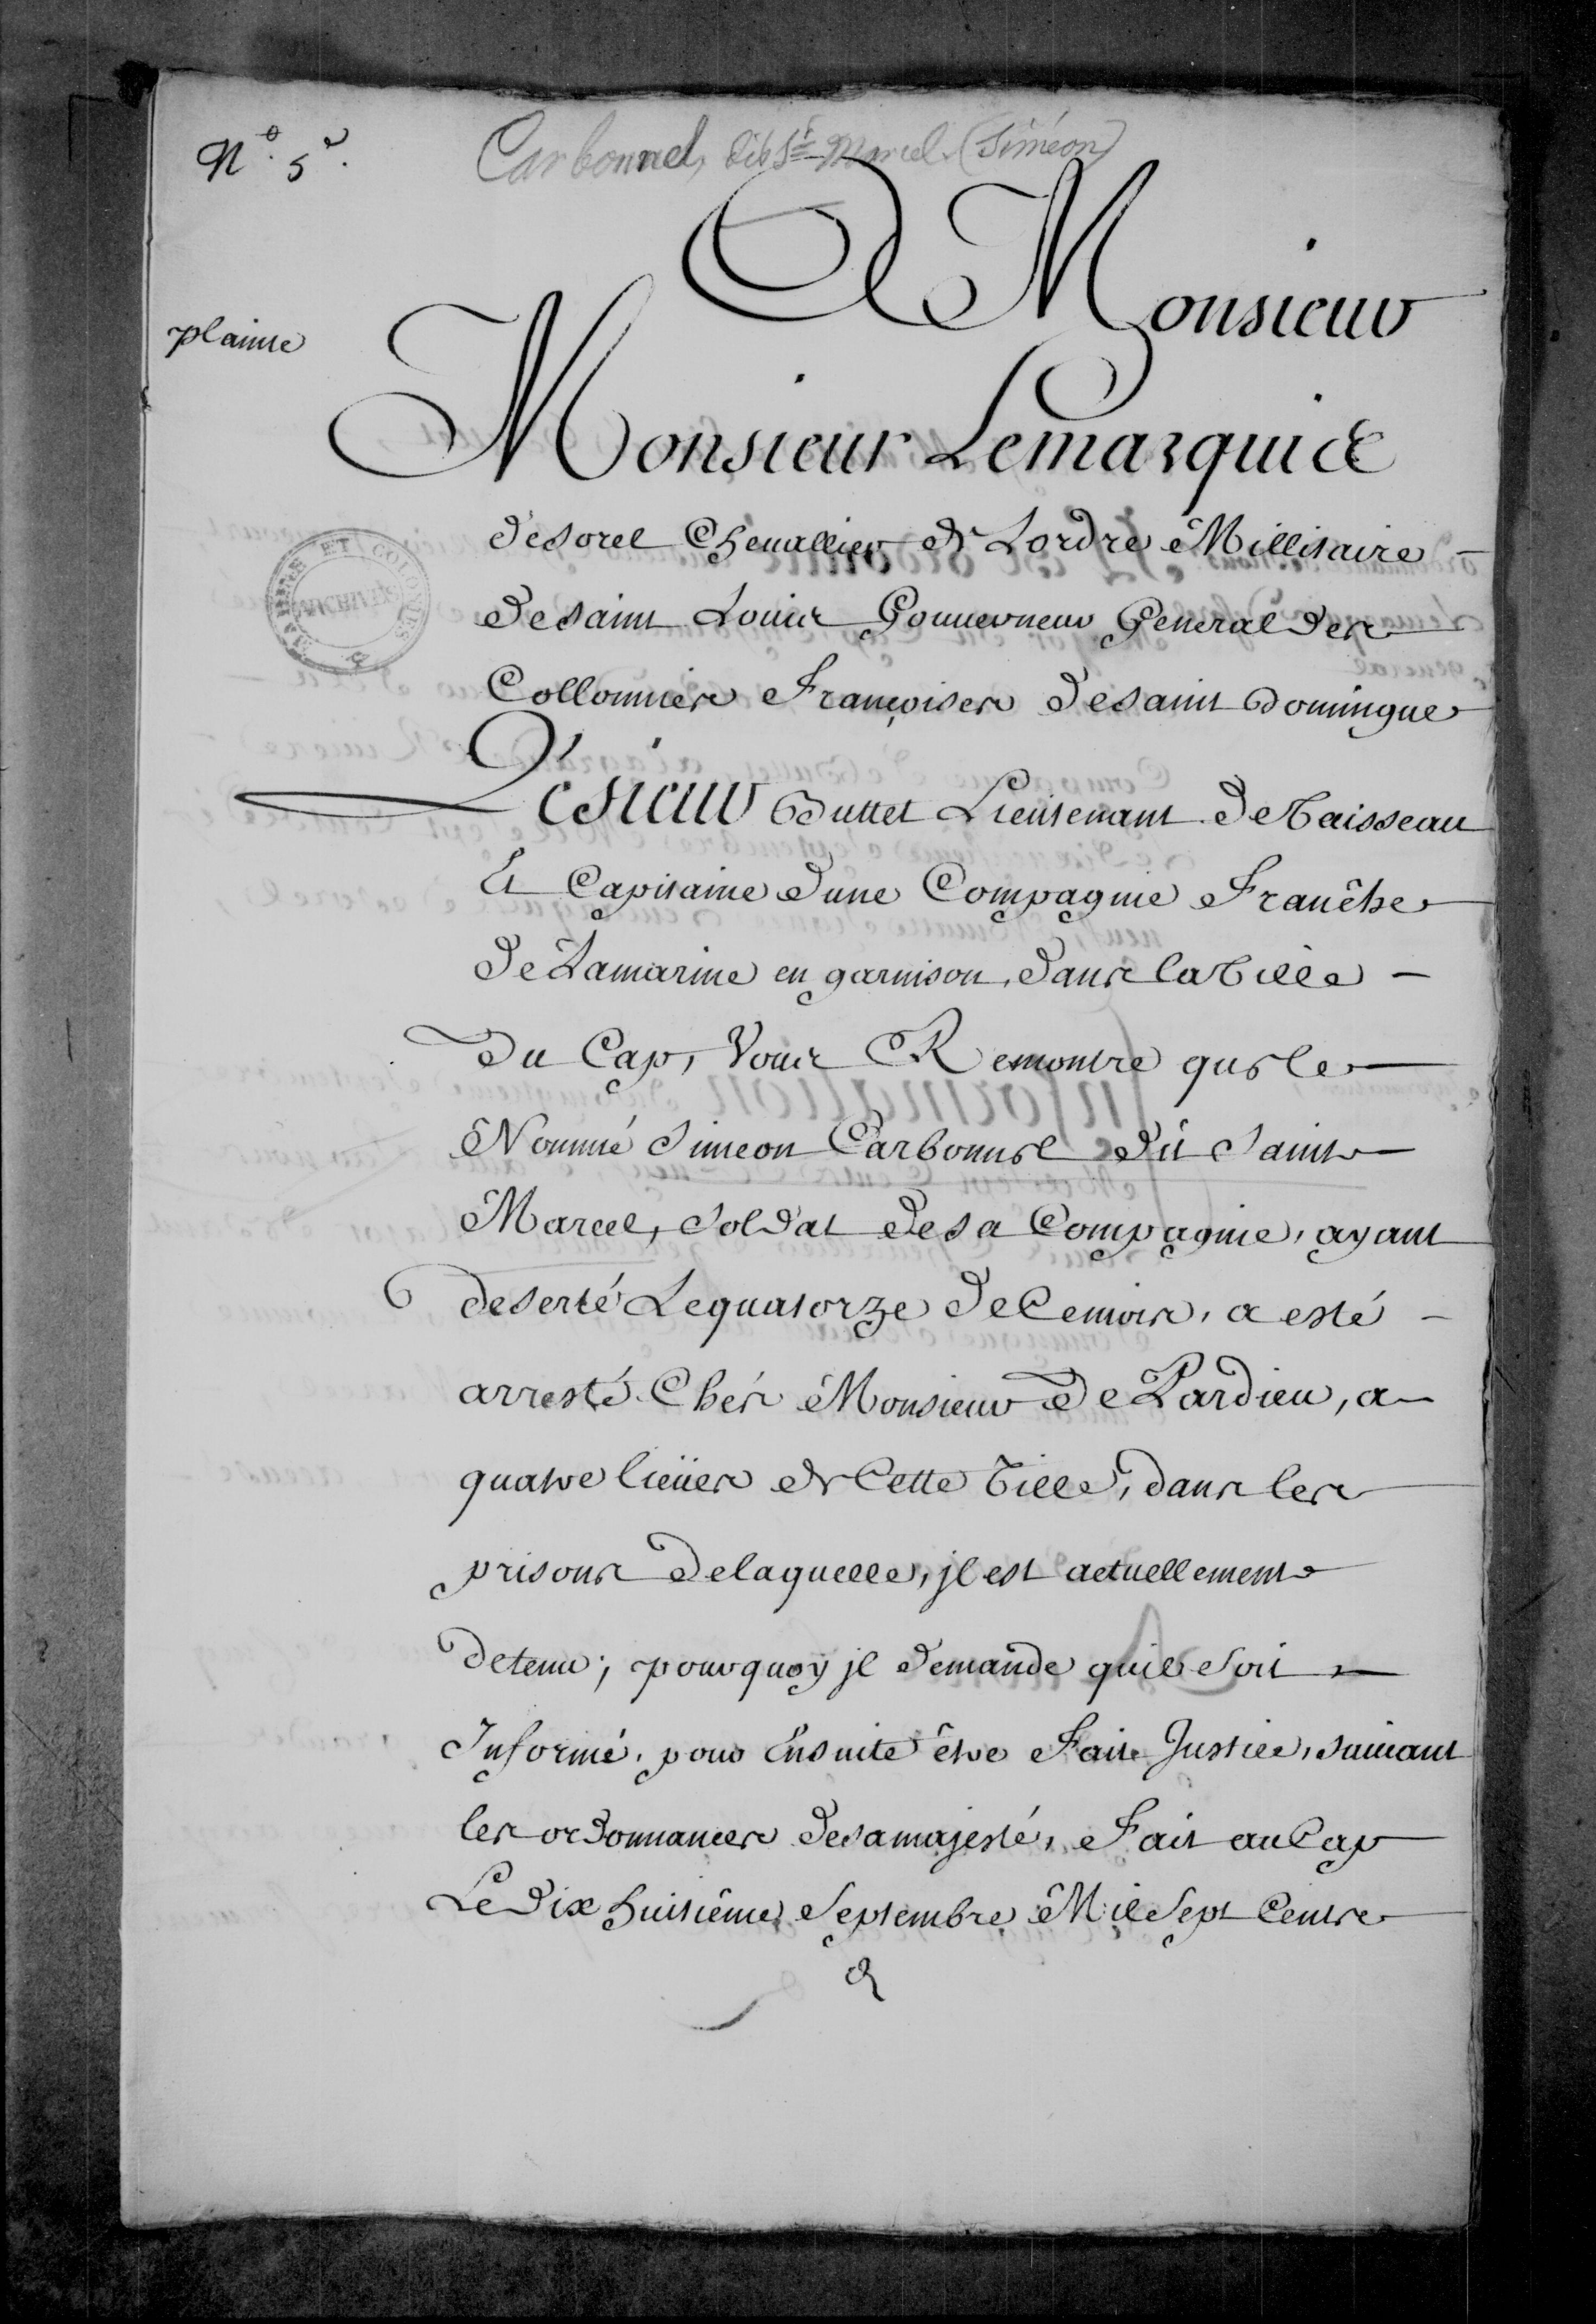 N.° 5e.
Carbonnel, dit St Marcel (Siméon)
A Monsieur
plainte
Monsieur Lemarquis
desorel Chenallier de Lordre Millitaire
desaint Louis Gouuerneur General des
Collonnies Françoises desaint Domingue
MARINE ET COLONIES
ARCHIVES
Lesieur Buttet Lieutenant de Vaisseau
Et Capitaine dune Compagnie Franche
de Lamarine en garnison, dans la Ville
du Cap, Vous Remontre que le
Nommé Simeon Carbonnel dit Saint
Marcel, soldat desa Compagnie, ayant
deserté Lequatorze de Cemois, a esté
arresté Chés Monsieur de Pardieu, a
quatre lieües de Cette Ville, dans les
prisons delaquelle, jl est actuellement
detenu; pourquoy jl demande quil soit
Informé, pour Ensuite être Fait Justice, suiuant
les ordonnances desamajesté, Fait au Cap
Le dix huitiême Septembre Mil Sept Cents